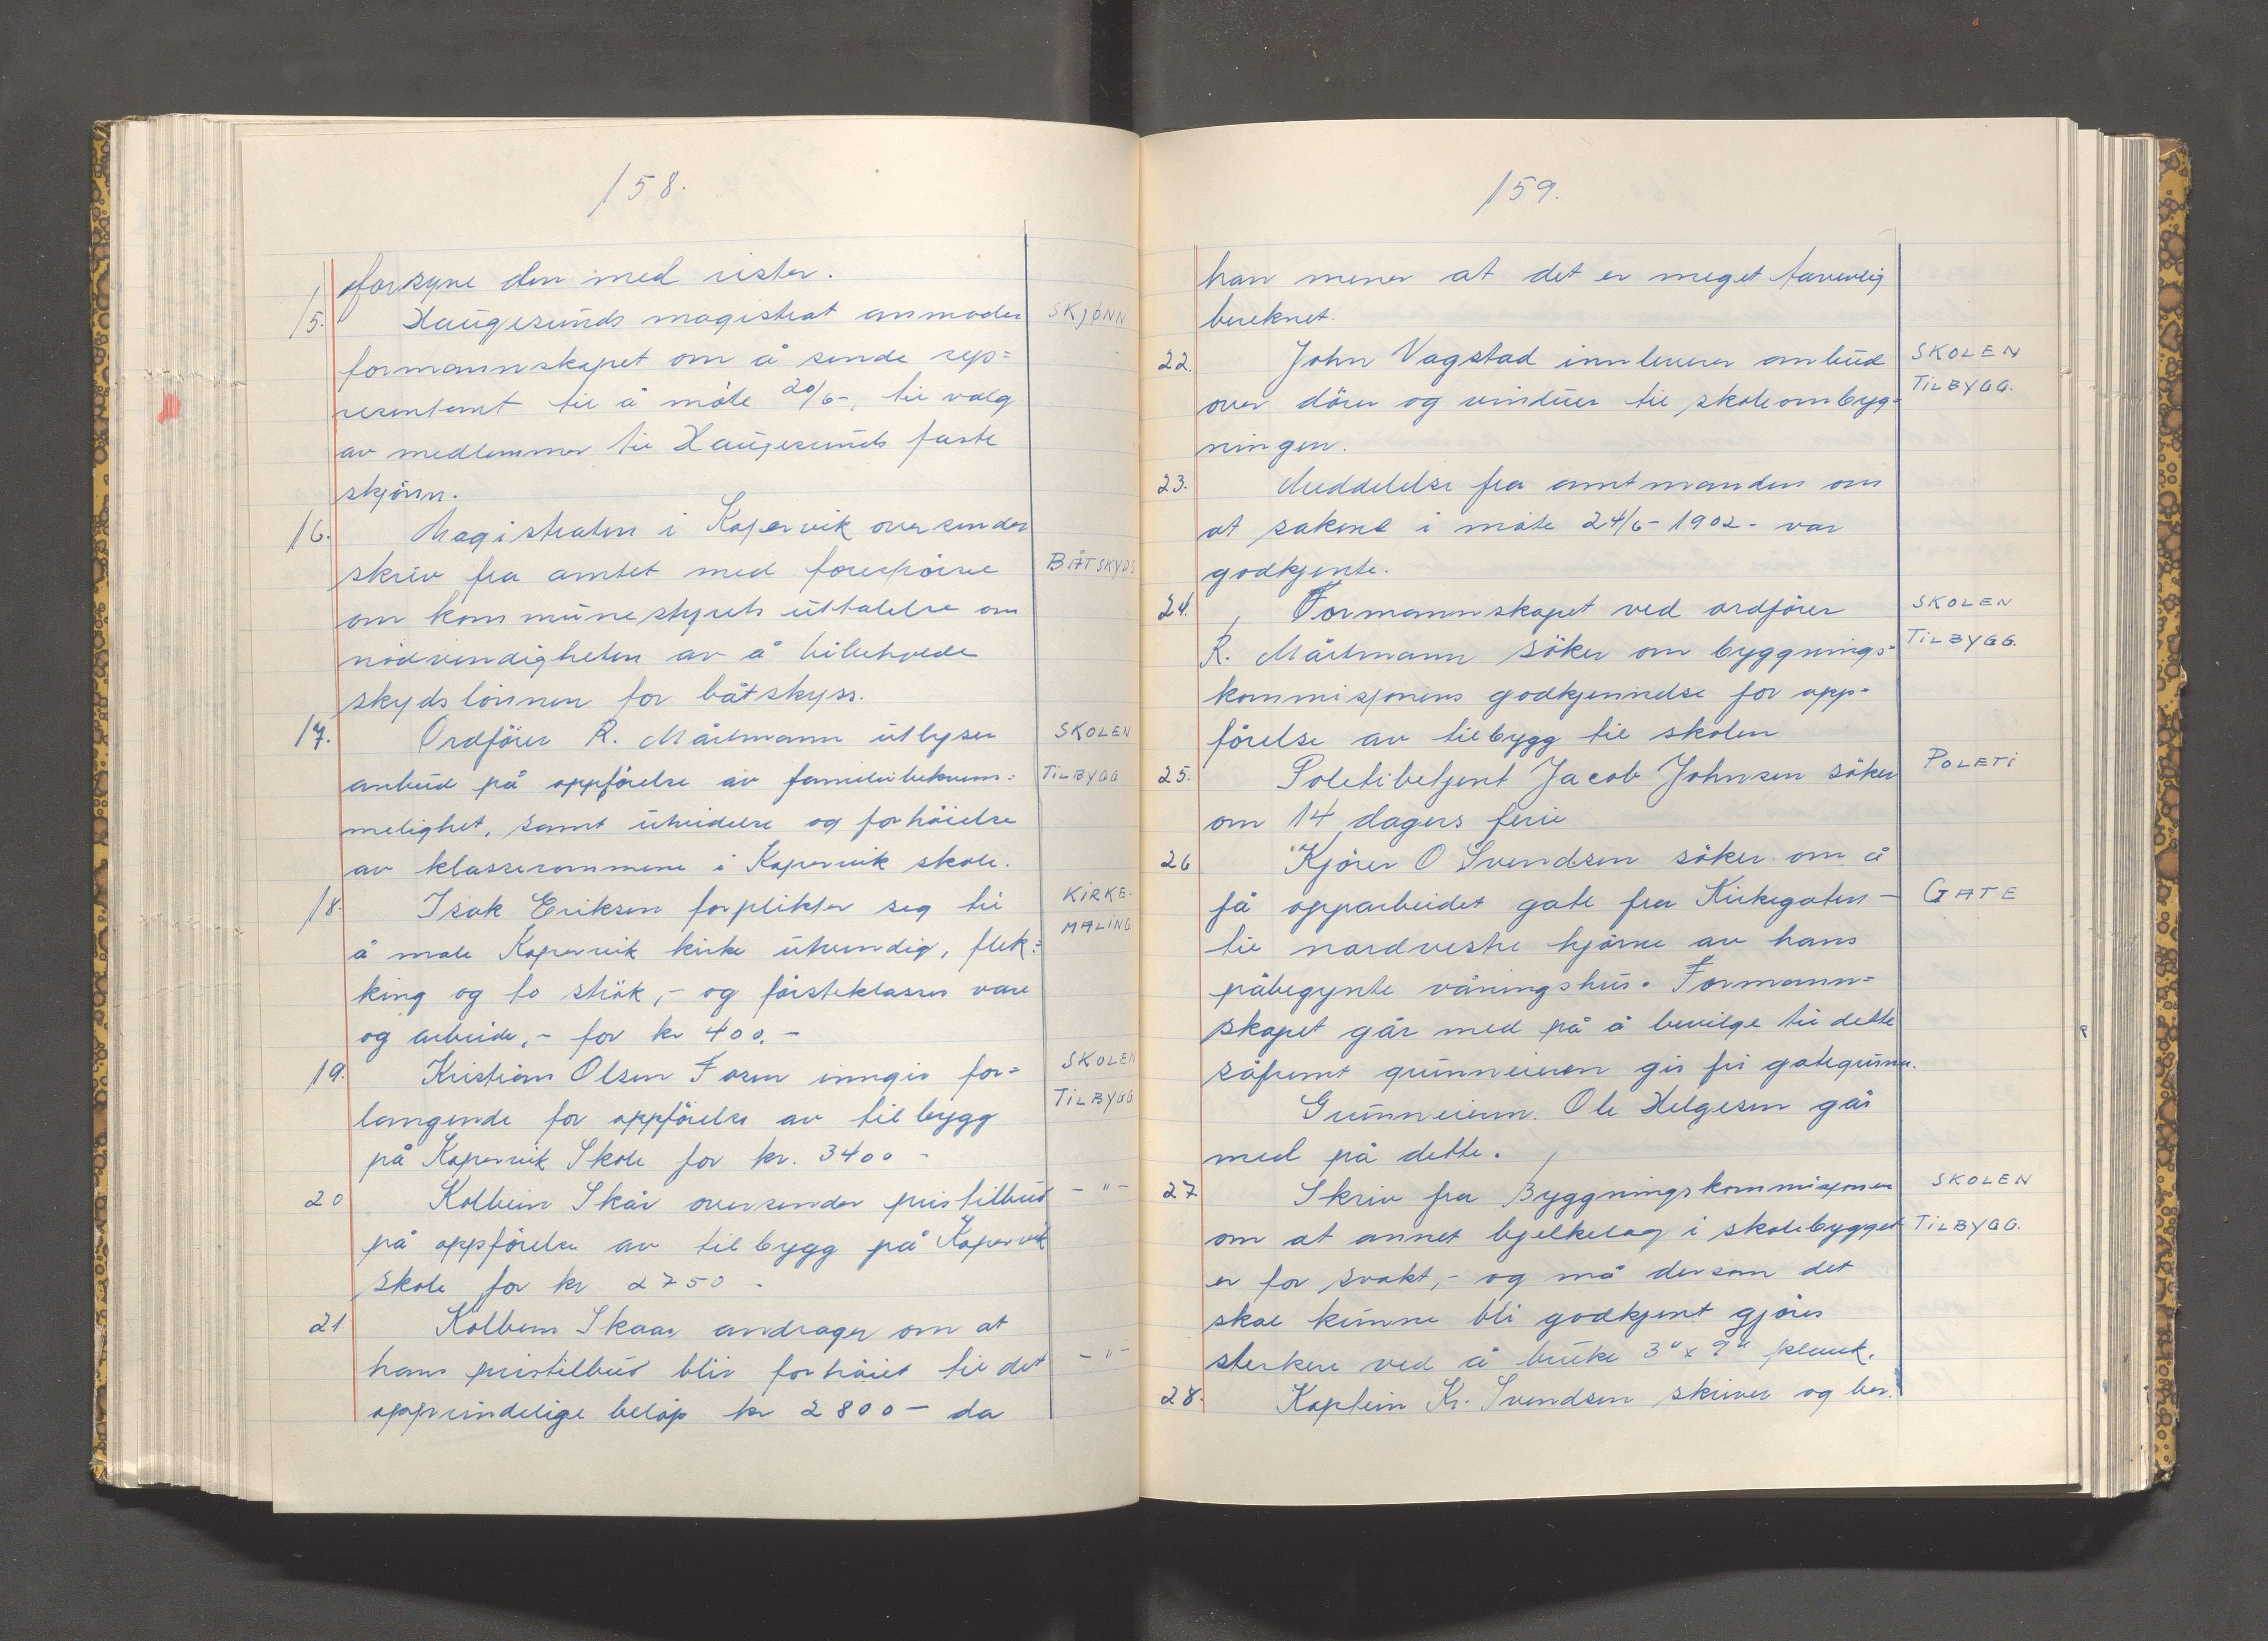 158.
forsyne den med rister.
15. Haugesunds magistrat anmoder SKJØNN
formannskapet om å sende rep=
resentant til å möte 20/6-, til valg
av medlemmer til Haugesunds faste
skjönn.
16. Magistraten i Kopervik oversender
skriv fra amtet med forespörsel BÅTSKYDS
om kommunestyrets uttalelse om
nödvendigheten av å bibeholde
skydslönnen for båtskyss.
17. Ordförer R. Mårtmann utlyser SKOLEN
anbud på oppförelse av familiebekvem= TILBYGG
melighet, samt utvidelse og forhöielse
av klasserommene i Kopervik skole.
18. Isak Eriksen forplikter seg til KIRKE-
å male Kopervik kirke utvendig, flek= MALING
king og to strök,- og försteklasses vare
og arbeide,- for kr 400.-
19. Kristian Olsen Fosen inngir for= SKOLEN
langende for oppförelse av tilbygg TILBYGG
på Kopervik Skole for kr. 3400 -
20 Kolbein Skår oversender pristilbud - " -
på oppförelse av tilbygg på Kopervik
skole for kr 2750 -
21. Kolbein Skaar andrager om at
hans pristilbud blir forhöiet til det - " -
opprindelige belöp kr 2800 - da
159.
han mener at det er meget tarvelig
bereknet.
22. John Vagstad innleverer anbud SKOLEN
over dörer og vinduer til skoleombyg- TILBYGG.
ningen.
23. Meddelelse fra amtmanden om
at sakene i möte 24/6 - 1902 - var
godkjente.
24. Formannskapet ved ordförer SKOLEN
R. Mårtmann söker om byggnings= TILBYGG.
kommisjonens godkjennelse for opp-
förelse av tilbygg til skolen
25. Poletibetjent Jacob Johnsen söker POLETI
om 14 dagers ferie
26 Kjörer O Svendsen söker om å
få opparbeidet gate fra Kirkegaten - GATE
til nordvestre hjörne av hans
påbegynte våningshus. Formann=
skapet går med på å bevilge til dette
såfremt grunneieren gir fri gategrunn.
Grunneieren. Ole Helgesen går
med på dette.
27. Skriv fra Byggningskommisjonen SKOLEN
om at annet bjelkelag i skolebygget TILBYGG.
er for svakt,- og må dersom det
skal kunne bli godkjent gjöres
sterkere ved å bruke 3" x 9" plank.
28. Kaptein Kr. Svendsen skriver og ber.